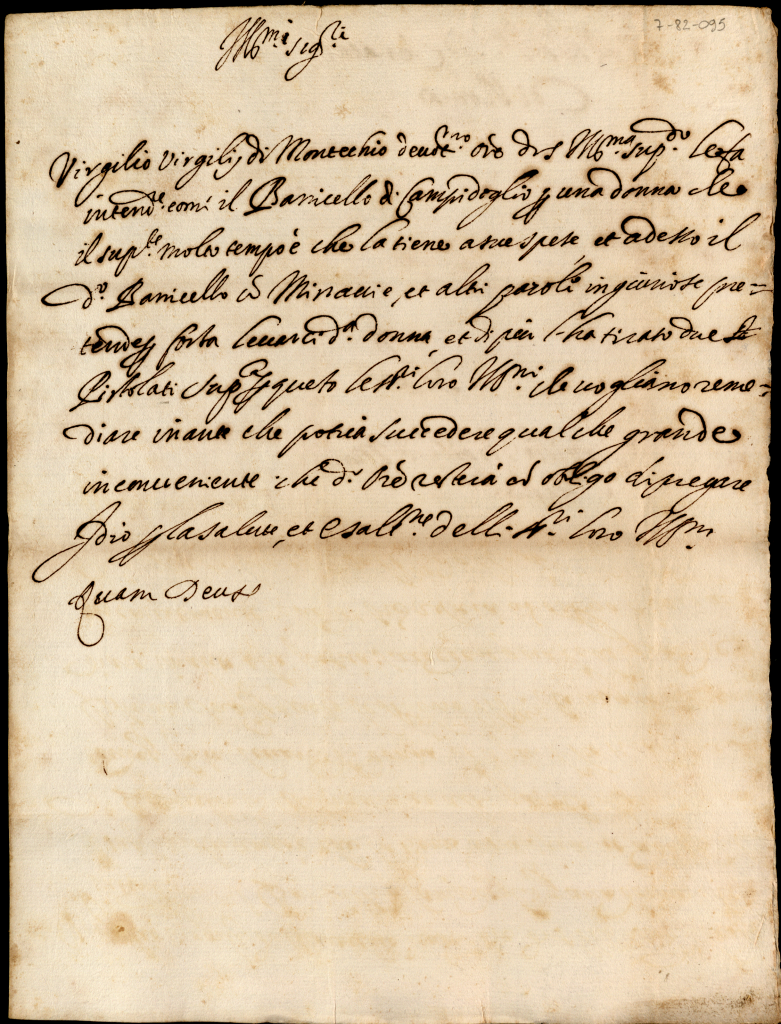 7-82-095
Ill.mi Sig.ri
Virgilio Virgilij di Montecchio devot.mo ore d S Ill.ma sup.do le fa
intend.e come il Barricello di Campidoglio p una donna che
il sup.te molto tempo è che la tiene a sue spese, et adesso il
d.o Barricello cō Minacie, et altri parole ingiuriose pre=
tende p forza levarci d.a donna, et di più l'ha tirato due
Pistolati sup.ca p questo le SS.rie loro Ill.mi che vogliano reme=
diare inante che potria succedere qualche grande
inconveniente che d.o Orē resterà cō obligo di pregare
Idio p la salute, et esalt.ne delli SS.ri loro Ill.mi
Quam Deus